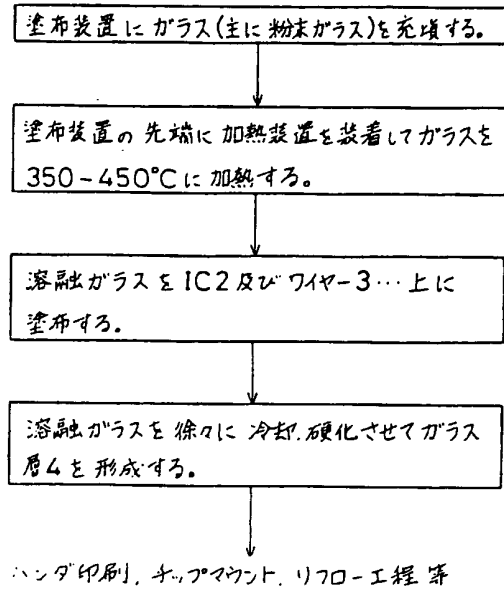 塗布装置にガラス(主に粉末ガラス)を充填する。
塗布装置の先端に加熱装置を装着してガラスを
350-450°Cに加熱する。
溶融ガラスをIC2及びワイヤー3…上に
塗布する。
溶融ガラスを徐々に冷却.硬化させてガラス
層4を形成する。
ハンダ印刷,チップマウント,リフロー工程等